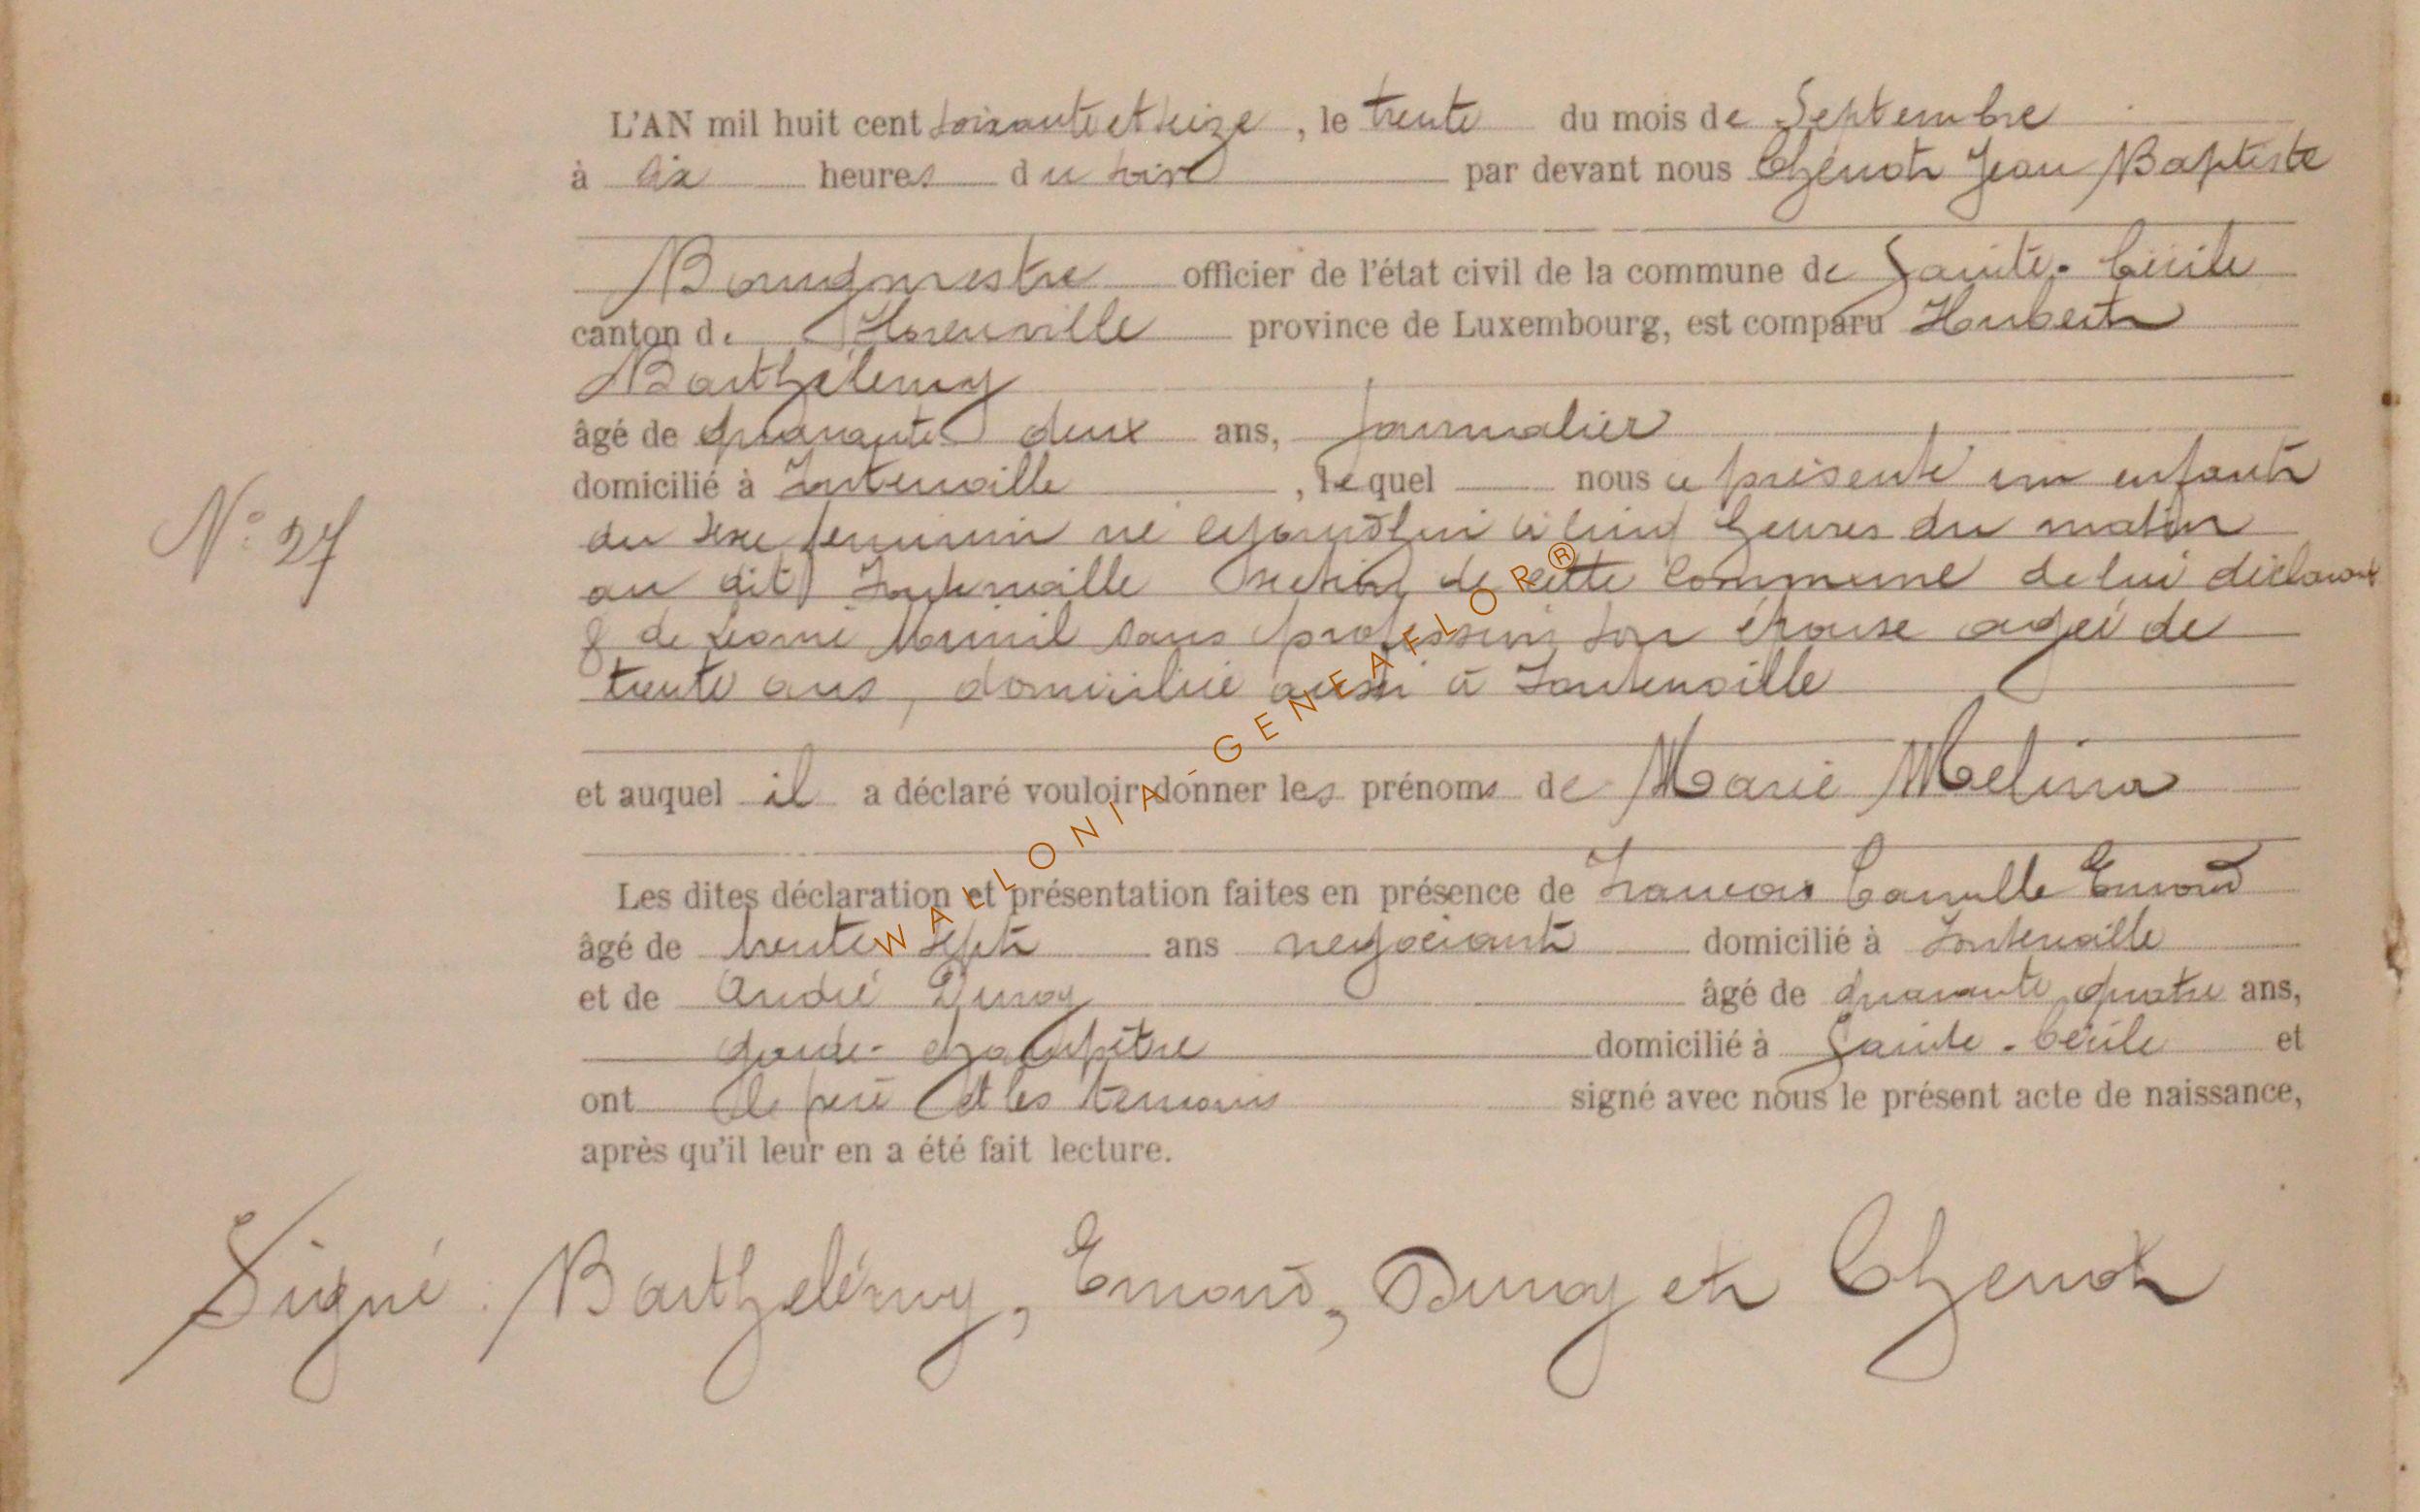 L'AN mil huit cent soixante et seize, le trente du mois de Septembre
à six heures du soir par devant nous Chenot Jean Baptiste
Bourgmestre officier de l'état civil de la commune de Sainte-Cécile
canton de Florenville province de Luxembourg, est comparu Hubert
Barthélemy
âgé de quarante deux ans, journalier
domicilié à Fontenoille, lequel nous a présenté un enfant
du sexe feminin né cejourd'hui à cinq heures du matin
au dit Fontenoille section de cette commune de lui déclarant
& de Leonie sans profession son épouse agée de
trente ans, domiciliée aussi à Fontenoille
N° 27
et auquel il a déclaré vouloir donner les prénoms de Marie Melina
Les dites déclaration et présentation faites en présence de Francois Camille Emond
âgé de trente sept ans negociant domicilié à Fontenoille
et de André Duroy âgé de quarante quatre ans,
garde-champêtre domicilié à Sainte-Cécile et
ont le père et les temoins signé avec nous le présent acte de naissance,
après qu'il leur en a été fait lecture.
Signé: Barthelémy, Emond, Duroy et Chenot
WALLONIA-GENEAFLOR®